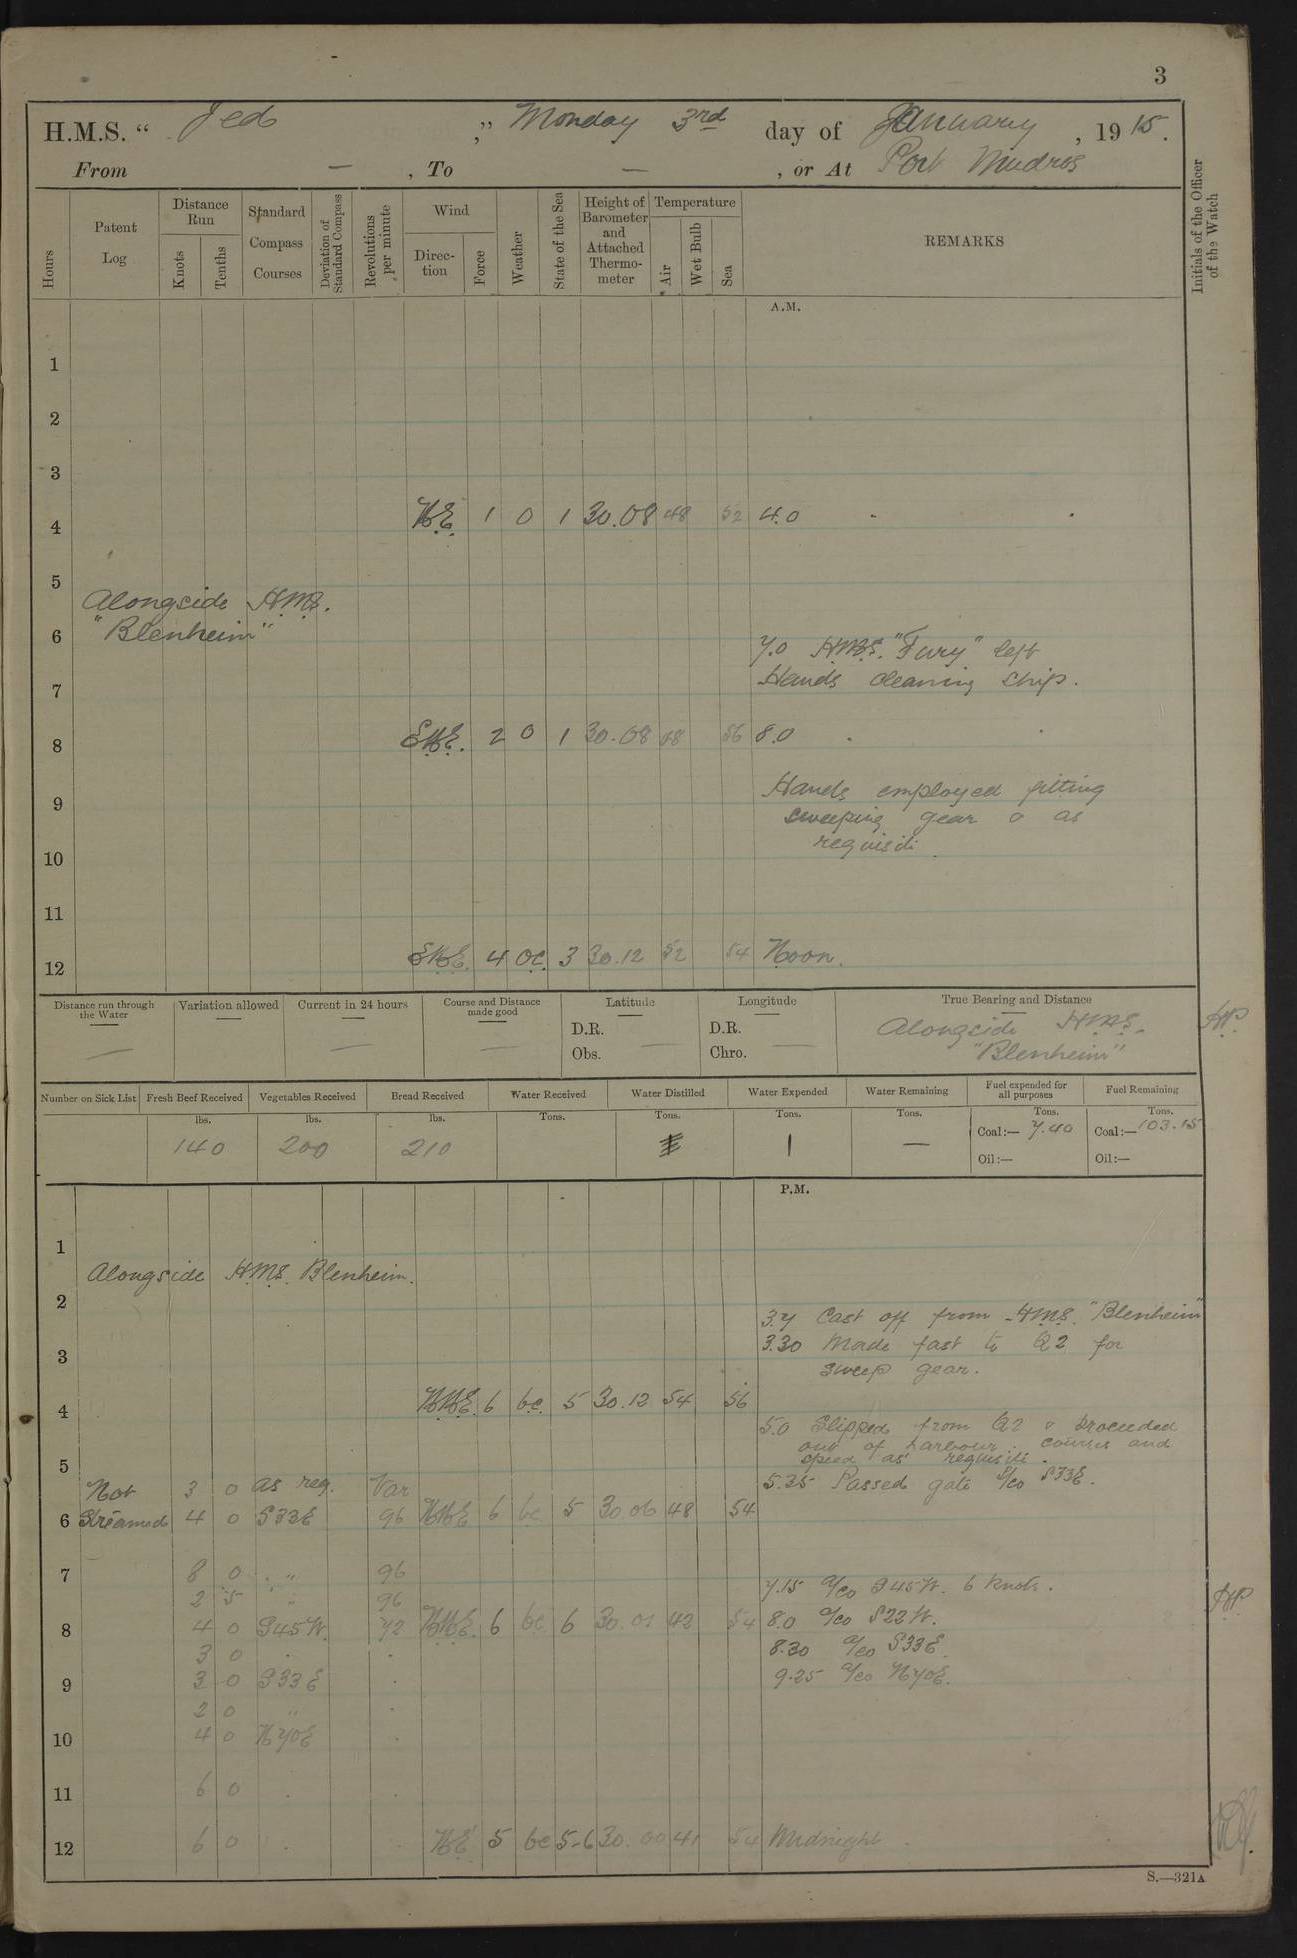 3
H.M.S. “ Jed ,” Monday 3rd day of January , 19 15.
From — , To — , or At Port Mudros
Hours
Patent Log
Distance Run
Knots
Tenths
Standard Compass Courses
Deviation of Standard Compass
Revolutions per minute
Wind
Direc-tion
Force
Weather
State of the Sea
Height of Barometer and Attached Thermo-meter
Temperature
Air
Wet Bulb
Sea
REMARKS
Initials of the Officer of the Watch
A.M.
1
2
3
4 N.E. 1 0 1 30.08 48 52 4.0
5
Alongside H.M.S.
6 "Blenheim"
7.0 H.M.S. "Fury" left
7 Hands cleaning ship.
8 E.N.E. 2 0 1 30.08 48 56 8.0
9 Hands employed fitting
sweeping gear & as
10 requisite
11
12 E.N.E. 4 o.c. 3 30.12 52 54 Noon.
Distance run through the Water —
Variation allowed —
Current in 24 hours —
Course and Distance made good —
Latitude —
D.R.
Obs.
Longitude —
D.R.
Chro.
True Bearing and Distance
Alongside H.M.S.
"Blenheim"
HP.
Number on Sick List
Fresh Beef Received
lbs.
140
Vegetables Received
lbs.
200
Bread Received
lbs.
210
Water Received
Tons.
Water Distilled
Tons.
Water Expended
Tons.
1
Water Remaining
Tons.
—
Fuel expended for all purposes
Tons.
Coal:— 7.40
Oil:—
Fuel Remaining
Tons.
Coal:— 103.15
Oil:—
P.M.
1
Alongside H.M.S. Blenheim.
2
3.7 Cast off from H.M.S. "Blenheim"
3 3.30 Made fast to Q2 for
sweep gear.
4 N.N.E. 6 b.c. 5 30.12 54 56
5.0 Slipped from Q2 & proceeded
out of harbour. courses and
5 speed as requisite.
Not 3 0 as req. Var 5.35 Passed gate S/co S33E.
6 Streamed 4 0 S33E 96 NNE 6 bc 5 30.06 48 54
7 8 0 " 96
2 5 " 96 7.15 a/co S45W. 6 knots.
8 4 0 S45W. 72 N.N.E. 6 bc 6 30.01 42 54 8.0 a/co S22W.
3 0 8.30 a/co S33E.
9 3 0 S33E 9.25 a/co N70E.
2 0 "
10 4 0 N70E
11 6 0
12 6 0 N.E 5 bc 5-6 30.00 41 54 Midnight
HP.
S.—321A